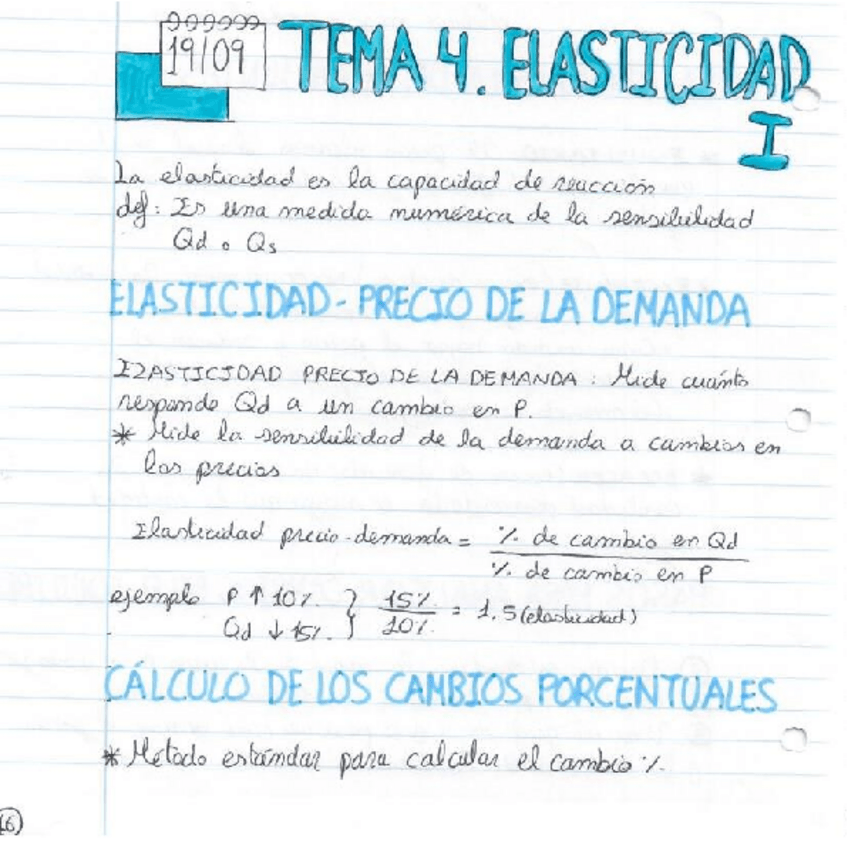 19/09
TEMA 4. ELASTICIDAD
I
La elasticidad es la capacidad de reacción
def: Es una medida numérica de la sensibilidad
Qd o Qs
ELASTICIDAD-PRECIO DE LA DEMANDA
ELASTICIDAD PRECIO DE LA DEMANDA: Mide cuánto
responde Qd a un cambio en P.
* Mide la sensibilidad de la demanda a cambios en
los precios
Elasticidad precio-demanda = % de cambio en Qd
% de cambio en P
ejemplo P ↑ 10% } 15% = 1,5 (elasticidad)
Qd ↓ 15% } 10%
CÁLCULO DE LOS CAMBIOS PORCENTUALES
* Método estándar para calcular el cambio %
16)